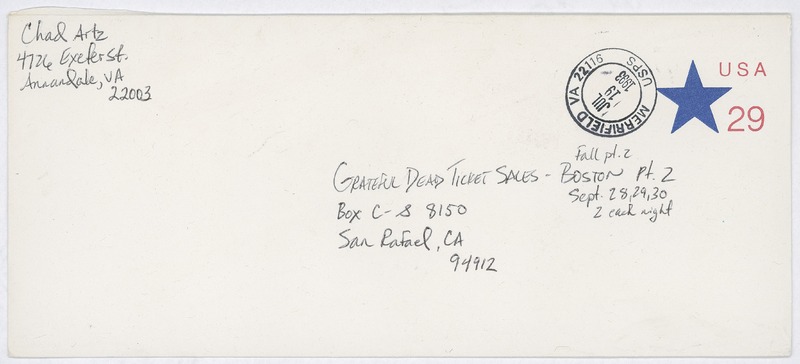 Chad Artz
4726 Exeter St.
Annandale, VA
22003
MERRIFIELD VA 22116 USPS
JUL
19
1993
USA
29
Fall pt. 2
GRATEFUL DEAD TICKET SALES - BOSTON Pt. 2
Sept. 28,29,30
2 each night
Box C-S 8150
San Rafael, CA
94912